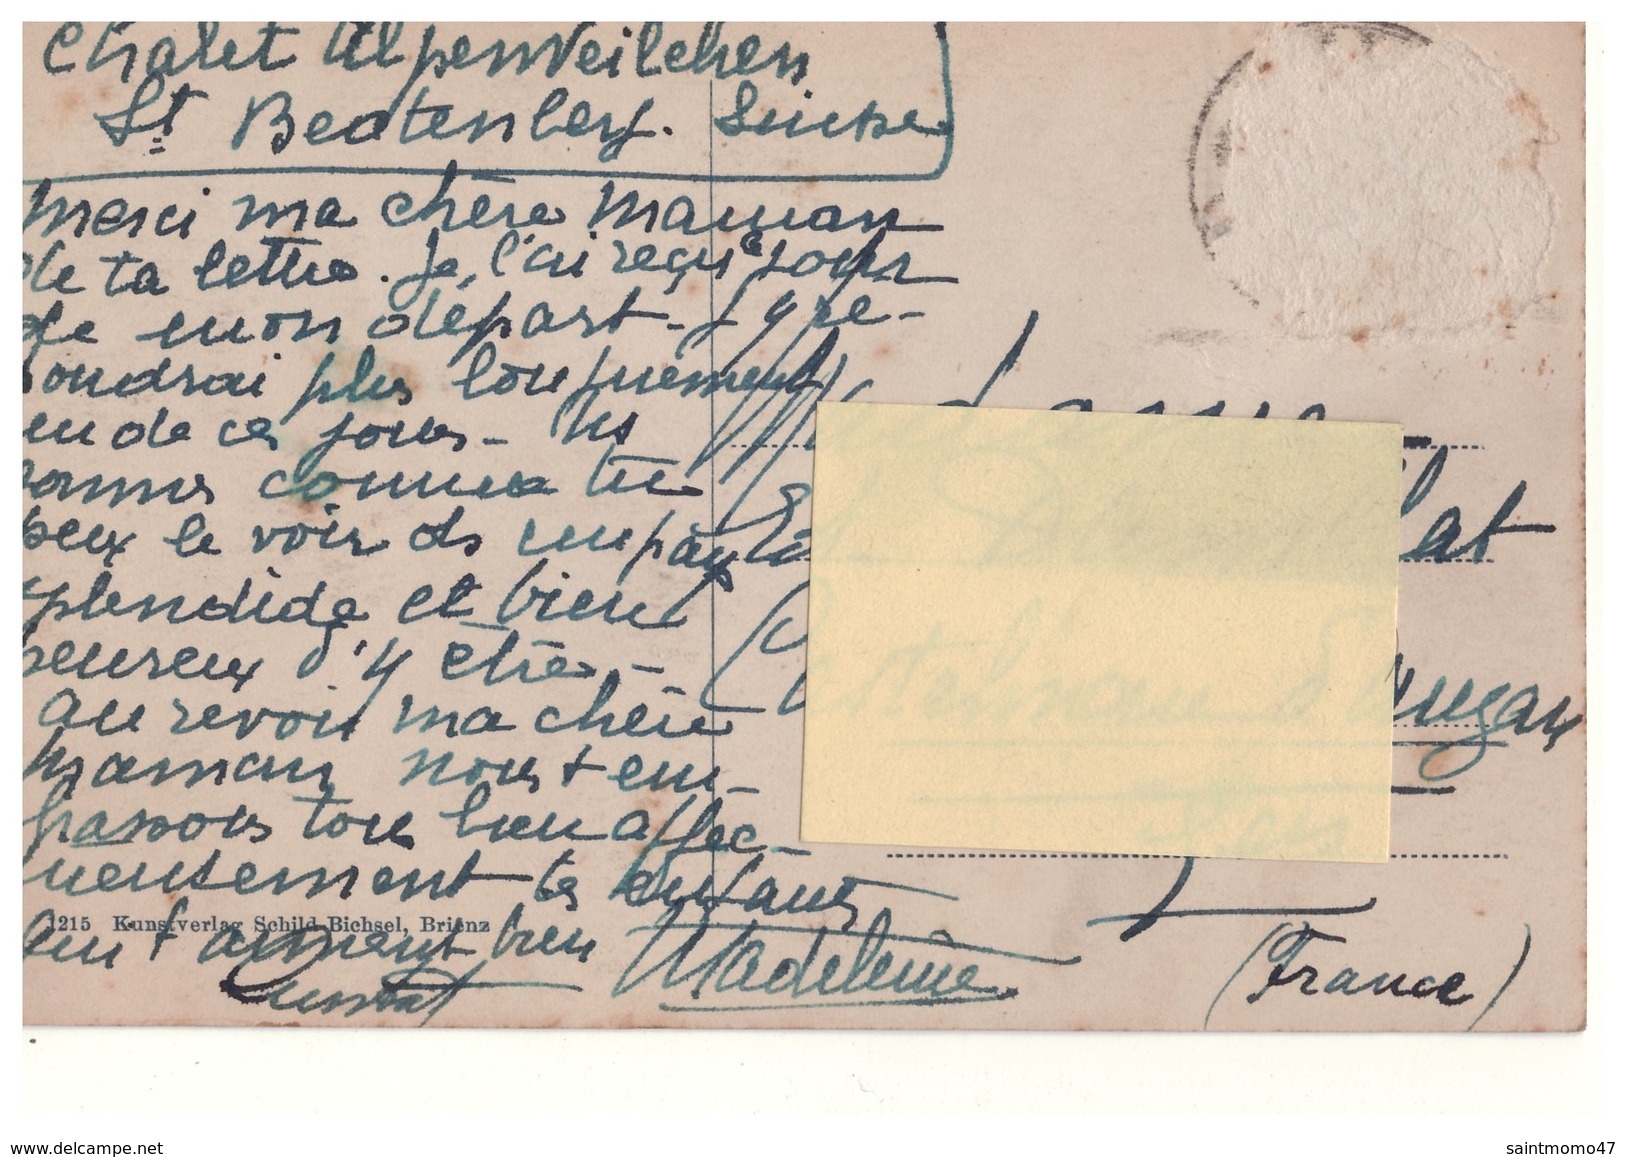 Chalet Alpenveilchen
St Beatenberg. Suisse
merci ma chère maman
de ta lettre. Je l'ai reçu le jour
de mon départ - J'y ré-
pondrai plus longuement
un de ces jours - Ns
sommes comme tu
peux le voir ds un pays
splendide et bien
heureux d'y être -
au revoir ma chère
maman nous t'em-
brassons tous bien affec-
tueusement tes enfants
qui t'aiment bien
Madeleine
1215 Kunstverlag Schild-Bichsel, Brienz
Madame
lat
Castelnau d'Auzan
Gers
(France)
saintmomo47